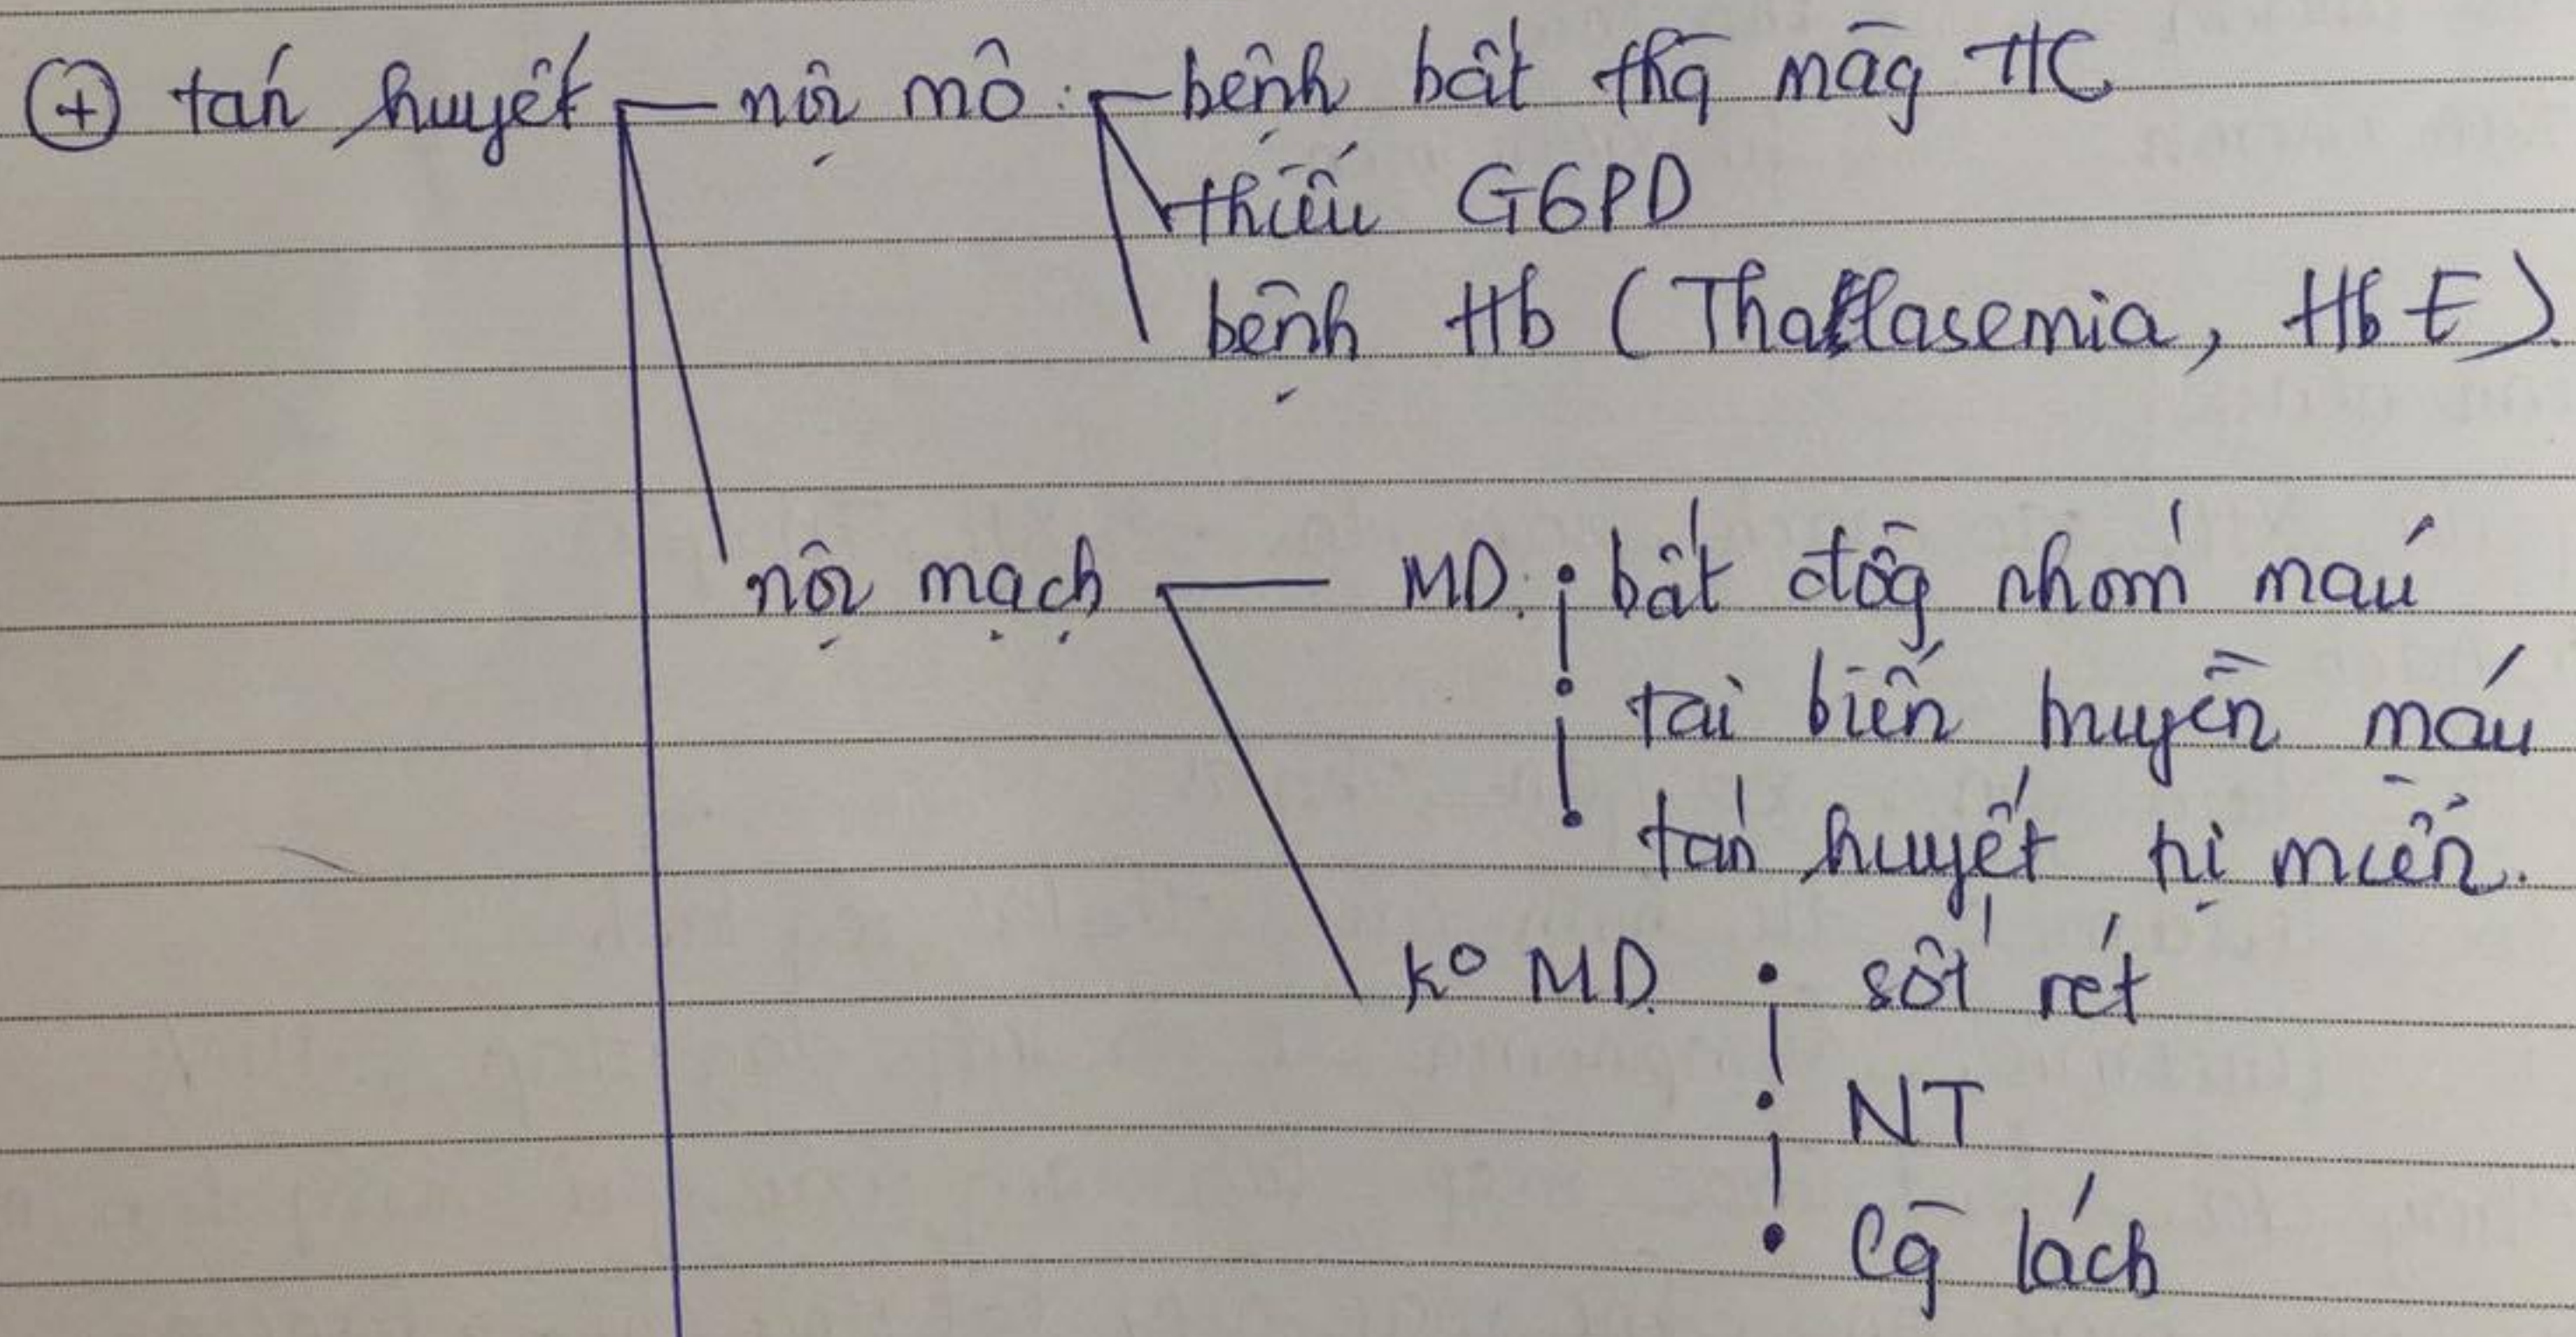 ⊕ tán huyết nội mô : bệnh bất thg̅ māg HC
thiếu G6PD
bệnh Hb (Thallasemia, HbE).
nội mạch MD: bất đôg̅ nhóm máu
tai biến truyền máu
tán huyết tự miễn.
k° MD. sốt rét
NT
Cg̅ lách